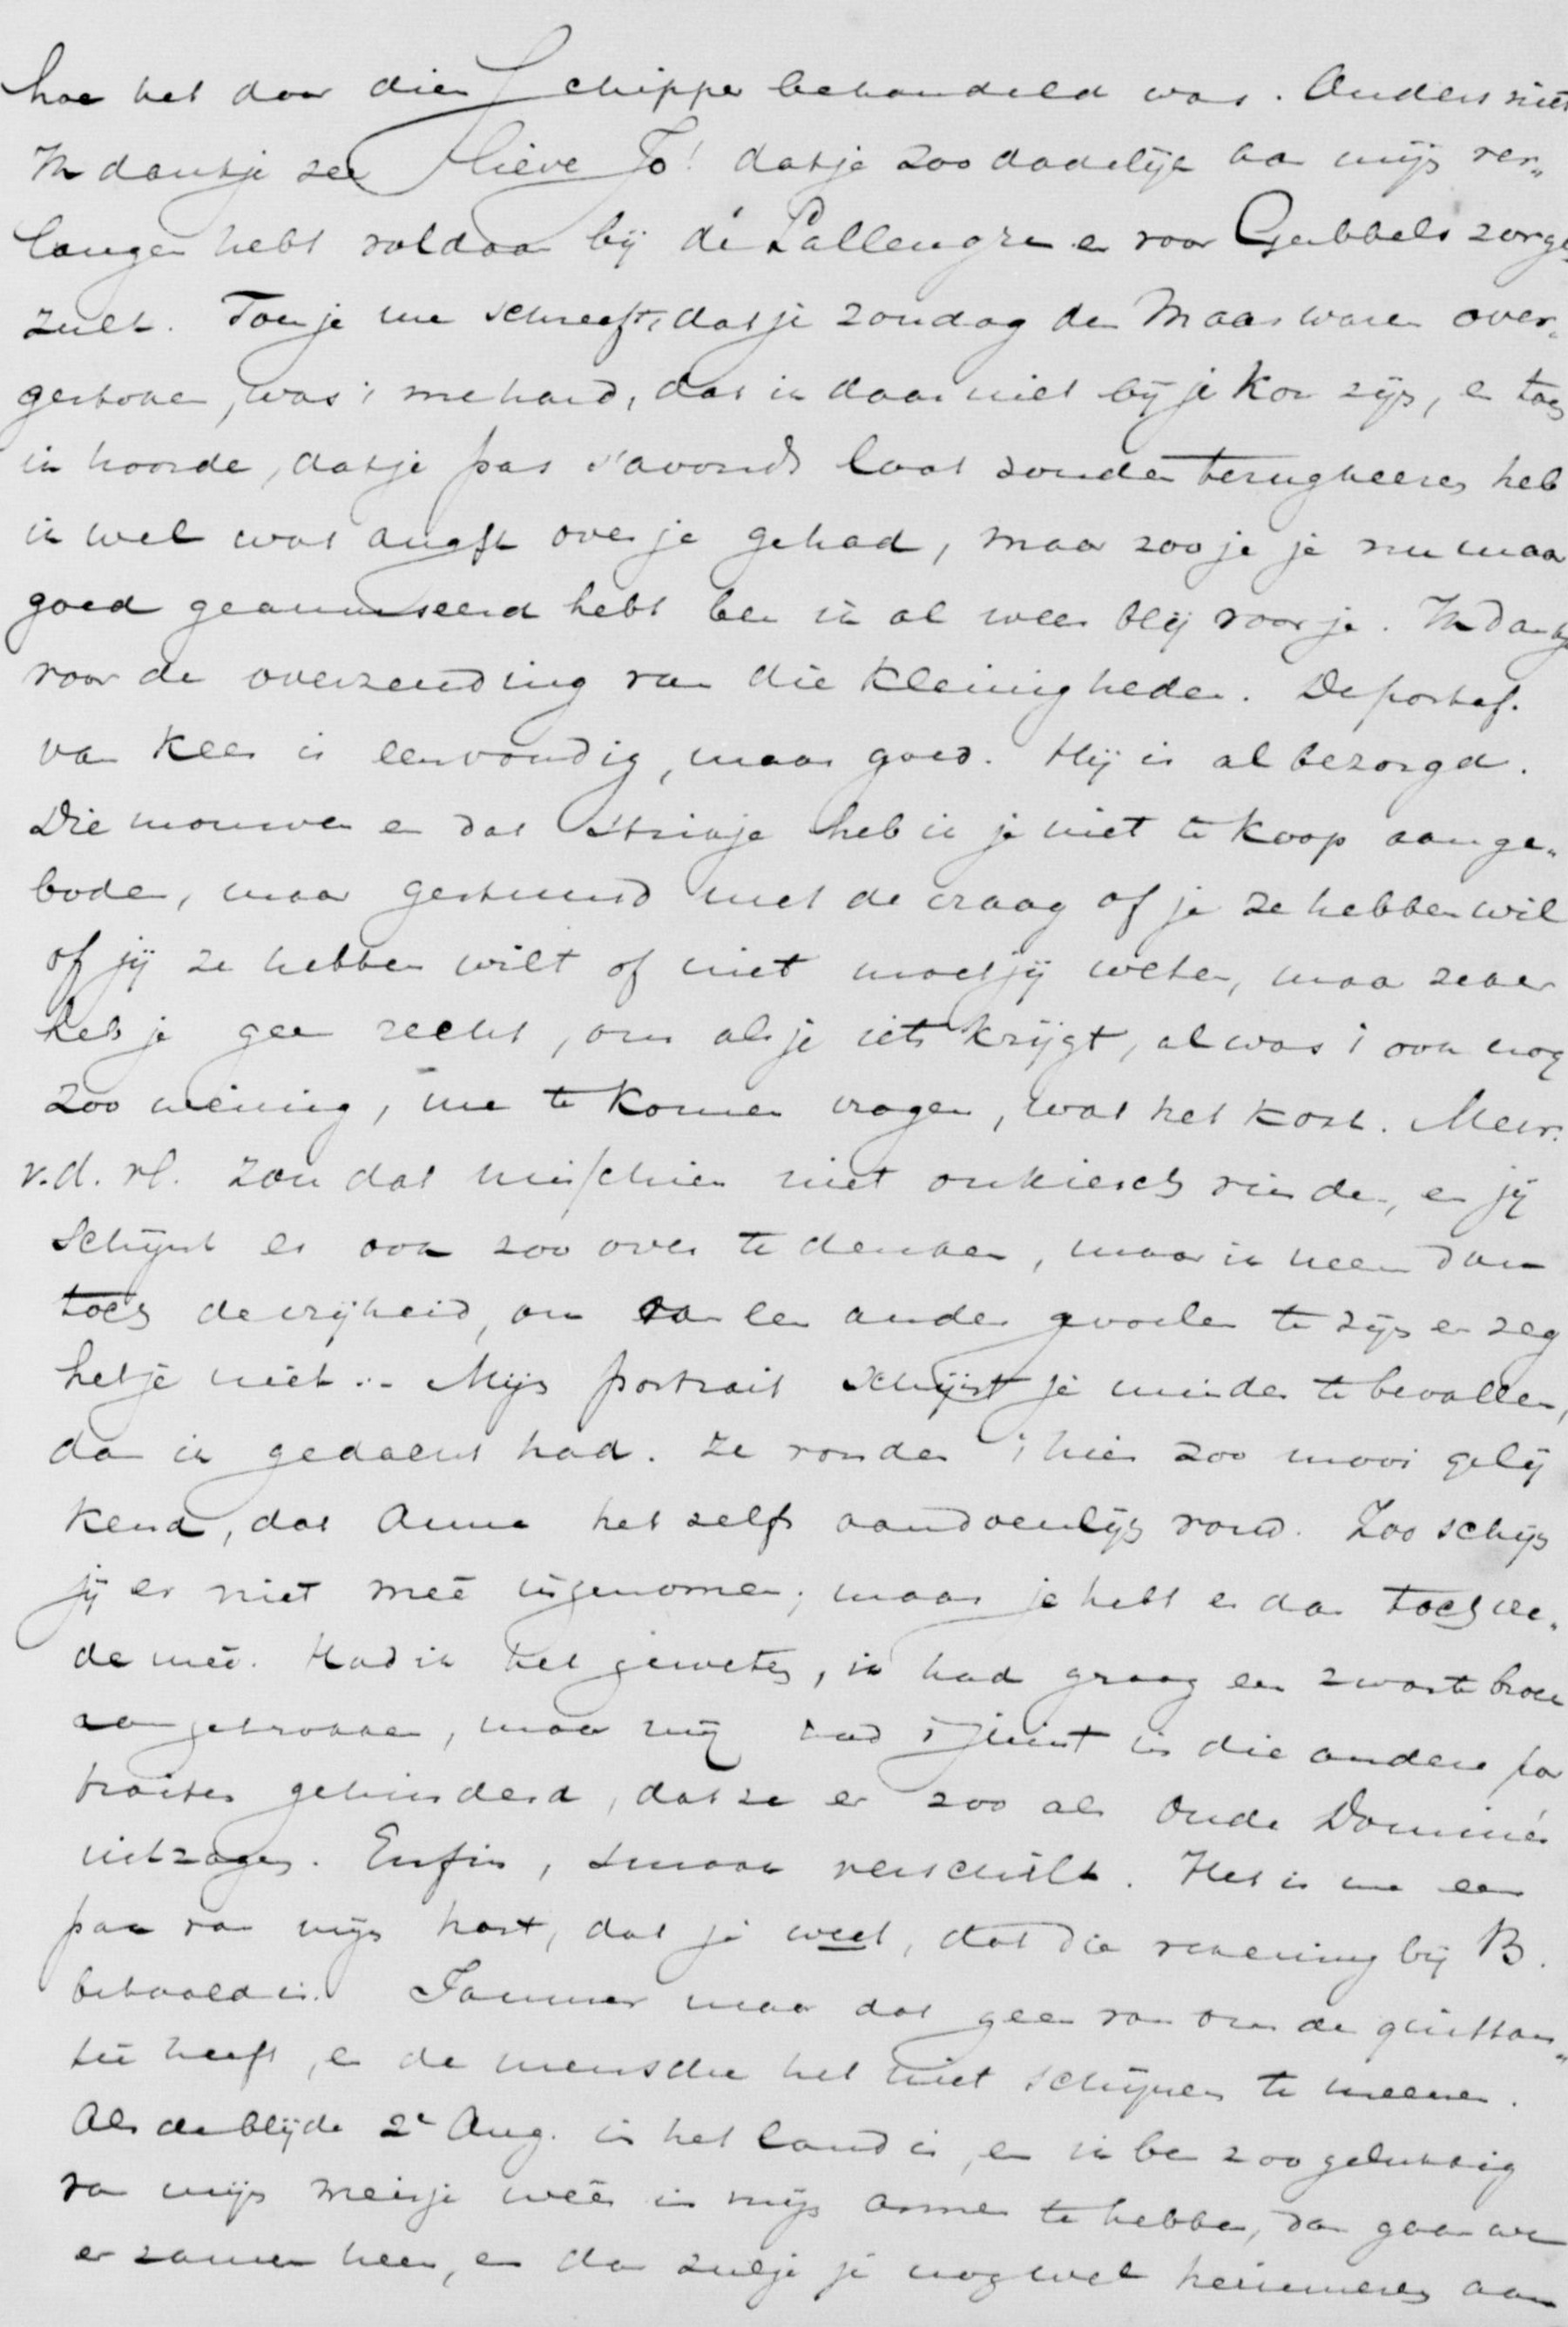 hoe het door dien Schipper behandeld was. Anders niet
Ik dank je zeer lieve Jo! dat je zoo dadelijk aan mijn ver„
langen hebt voldaan bij de en voor Gubbels zorgen
zult. Toen je me schreeft, dat je Zondag de Maas waren over„
gestoken, was 't me hard, dat ik daar niet bij je kon zijn, en toen
ik hoorde, dat je pas 's avonds laat zonder terugkeeren heb
ik wel wat angst over je gehad, maar zoo je je nu maar
goed geamuseerd hebt ben ik al weer blij voor je. Ik dank je
voor de overzending van die kleinigheden. De portef.
van Kees is eenvoudig, maar goed. Hij is al bezorgd.
Die mouwen en dat strikje heb ik je niet te koop aange„
boden, maar gestuurd met de vraag of je ze hebben wil
of jij ze hebben wilt of niet moet jij weten, maar zeker
heb je geen recht, om als je iets krijgt, al was 't ook nog
zoo weinig, me te komen vragen, wat het kost. Mevr.
v.d. Vl. zou dat misschien niet onkiesch vinden, en jij
schijnt er ook zoo over te denken, maar ik neem dan
toch de vrijheid, om van een ander gevoelen te zijn en zeg
het je niet. – Mijn portrait schijnt je minder te bevallen,
dan ik gedacht had. Ze vonden 't hier zoo mooi gelij
kend, dat Anna het zelfs aandoenlijk vond. Zoo schijn
jij er niet meê ingenomen; maar je hebt er dan toch vre„
de meê. Had ik het geweten, ik had graag een zwarte broek
aangetrokken, maar mij had 't juist in die andere por
traiten gehinderd, dat ze er zoo als oude Dominé's
uitzagen. Enfin, smaak verschilt. Het is me een
pak van mijn hart, dat je weet, dat die rekening bij B.
betaald is. Jammer maar dat geen van ons de quittan„
tie heeft, en de menschen het niet schijnen te meenen.
Als de blijde 2e Aug. in het land is, en ik ben zoo gelukkig
van mijn meisje weêr in mijn armen te hebben, dan gaan we
er zamen heen, en dan zul je je nog wel herinneren aan